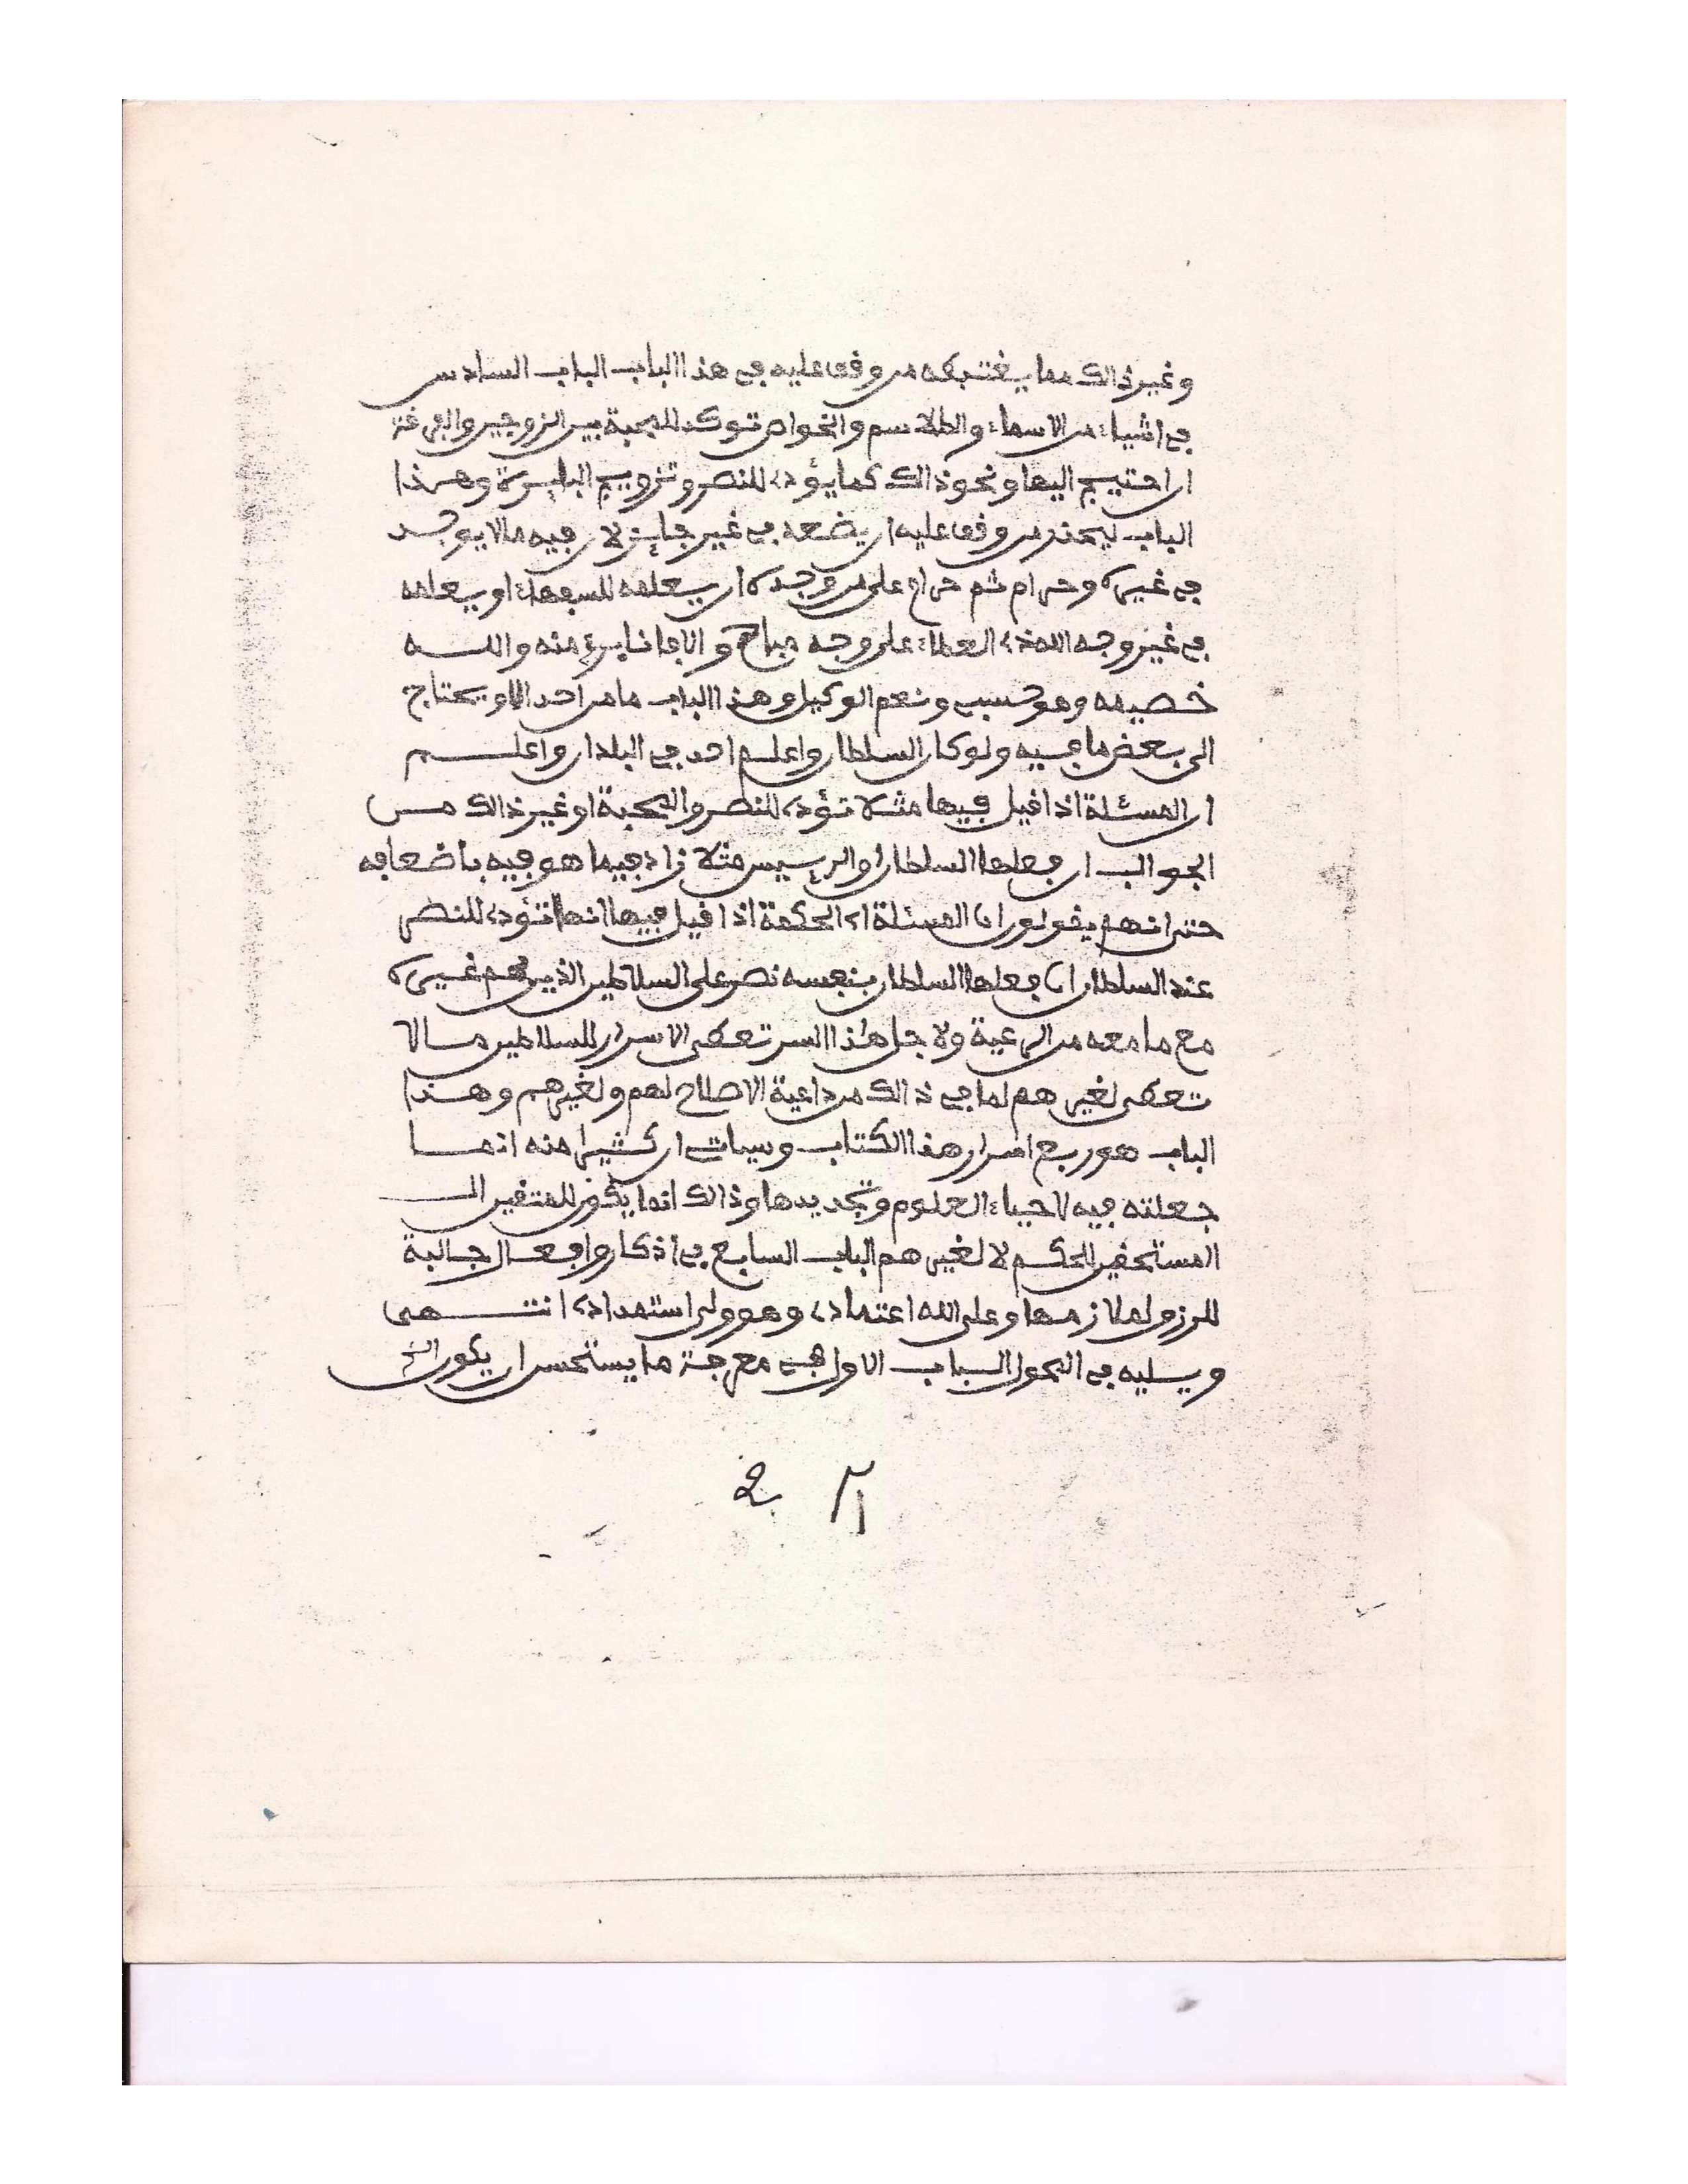 وغير ذالك مما يغتبطه من وقف عليه في هذا الباب الباب السادس
في اشياء من الاسماء والطلاسم والخواص توكد المحبة بين الزوجين والفرقة
ان احتيج اليها ونحو ذالك كما يؤدي للنصر وتزويج البايرة وهذا
الباب ليحذر من وقف عليه ان يضعه في غير جايز لان فيه ما لا يوجد
في غيره وحرام ثم حرام على من وجده ان يعلمه للسفهاء او يعلمه
في غير وجه الله ذي العطاء على وجه مباح والا فانا بريء منه والله
خصيمه وهو حسبي ونعم الوكيل وهذا الباب ما من احد الا ويحتاج
الى بعض ما فيه ولو كان السلطان واعلم احد في البلدان واعلم
ان المسئلة اذا قيل فيها مثلا تؤدي للنصر والمحبة او غير ذالك من
الجوالب ان فعلها السلطان او الرييس مثلا زاد فيما هو فيه باضعافه
حتى انهم يقولون ان المسئلة اي الحكمة اذا قيل فيها انها تؤدي للنصر
عند السلطان ان فعلها السلطان بنفسه نصر على السلاطين الذين هم غيره
مع ما معه من الرعية ولاجل هذا السر تعطى الاسرار للسلاطين ما لا
تعطى لغيرهم لما في ذالك من داعية الاصلاح لهم ولغيرهم وهذا
الباب هو ربع اسرار هذا الكتاب وسياتي ان كثيرا منه انما
جعلته فيه لاحياء العلوم وتجديدها وذالك انما يكون للمتقين الـ
المستحقين للحكم لا لغيرهم الباب السابع في اذكار وافعال جالبة
للرزق لملازمها وعلى الله اعتمادي وهو ولي استمدادي انتهى
ويليه في المحول الباب الاول في معرفة ما يستحسن ان يكون الخ
2